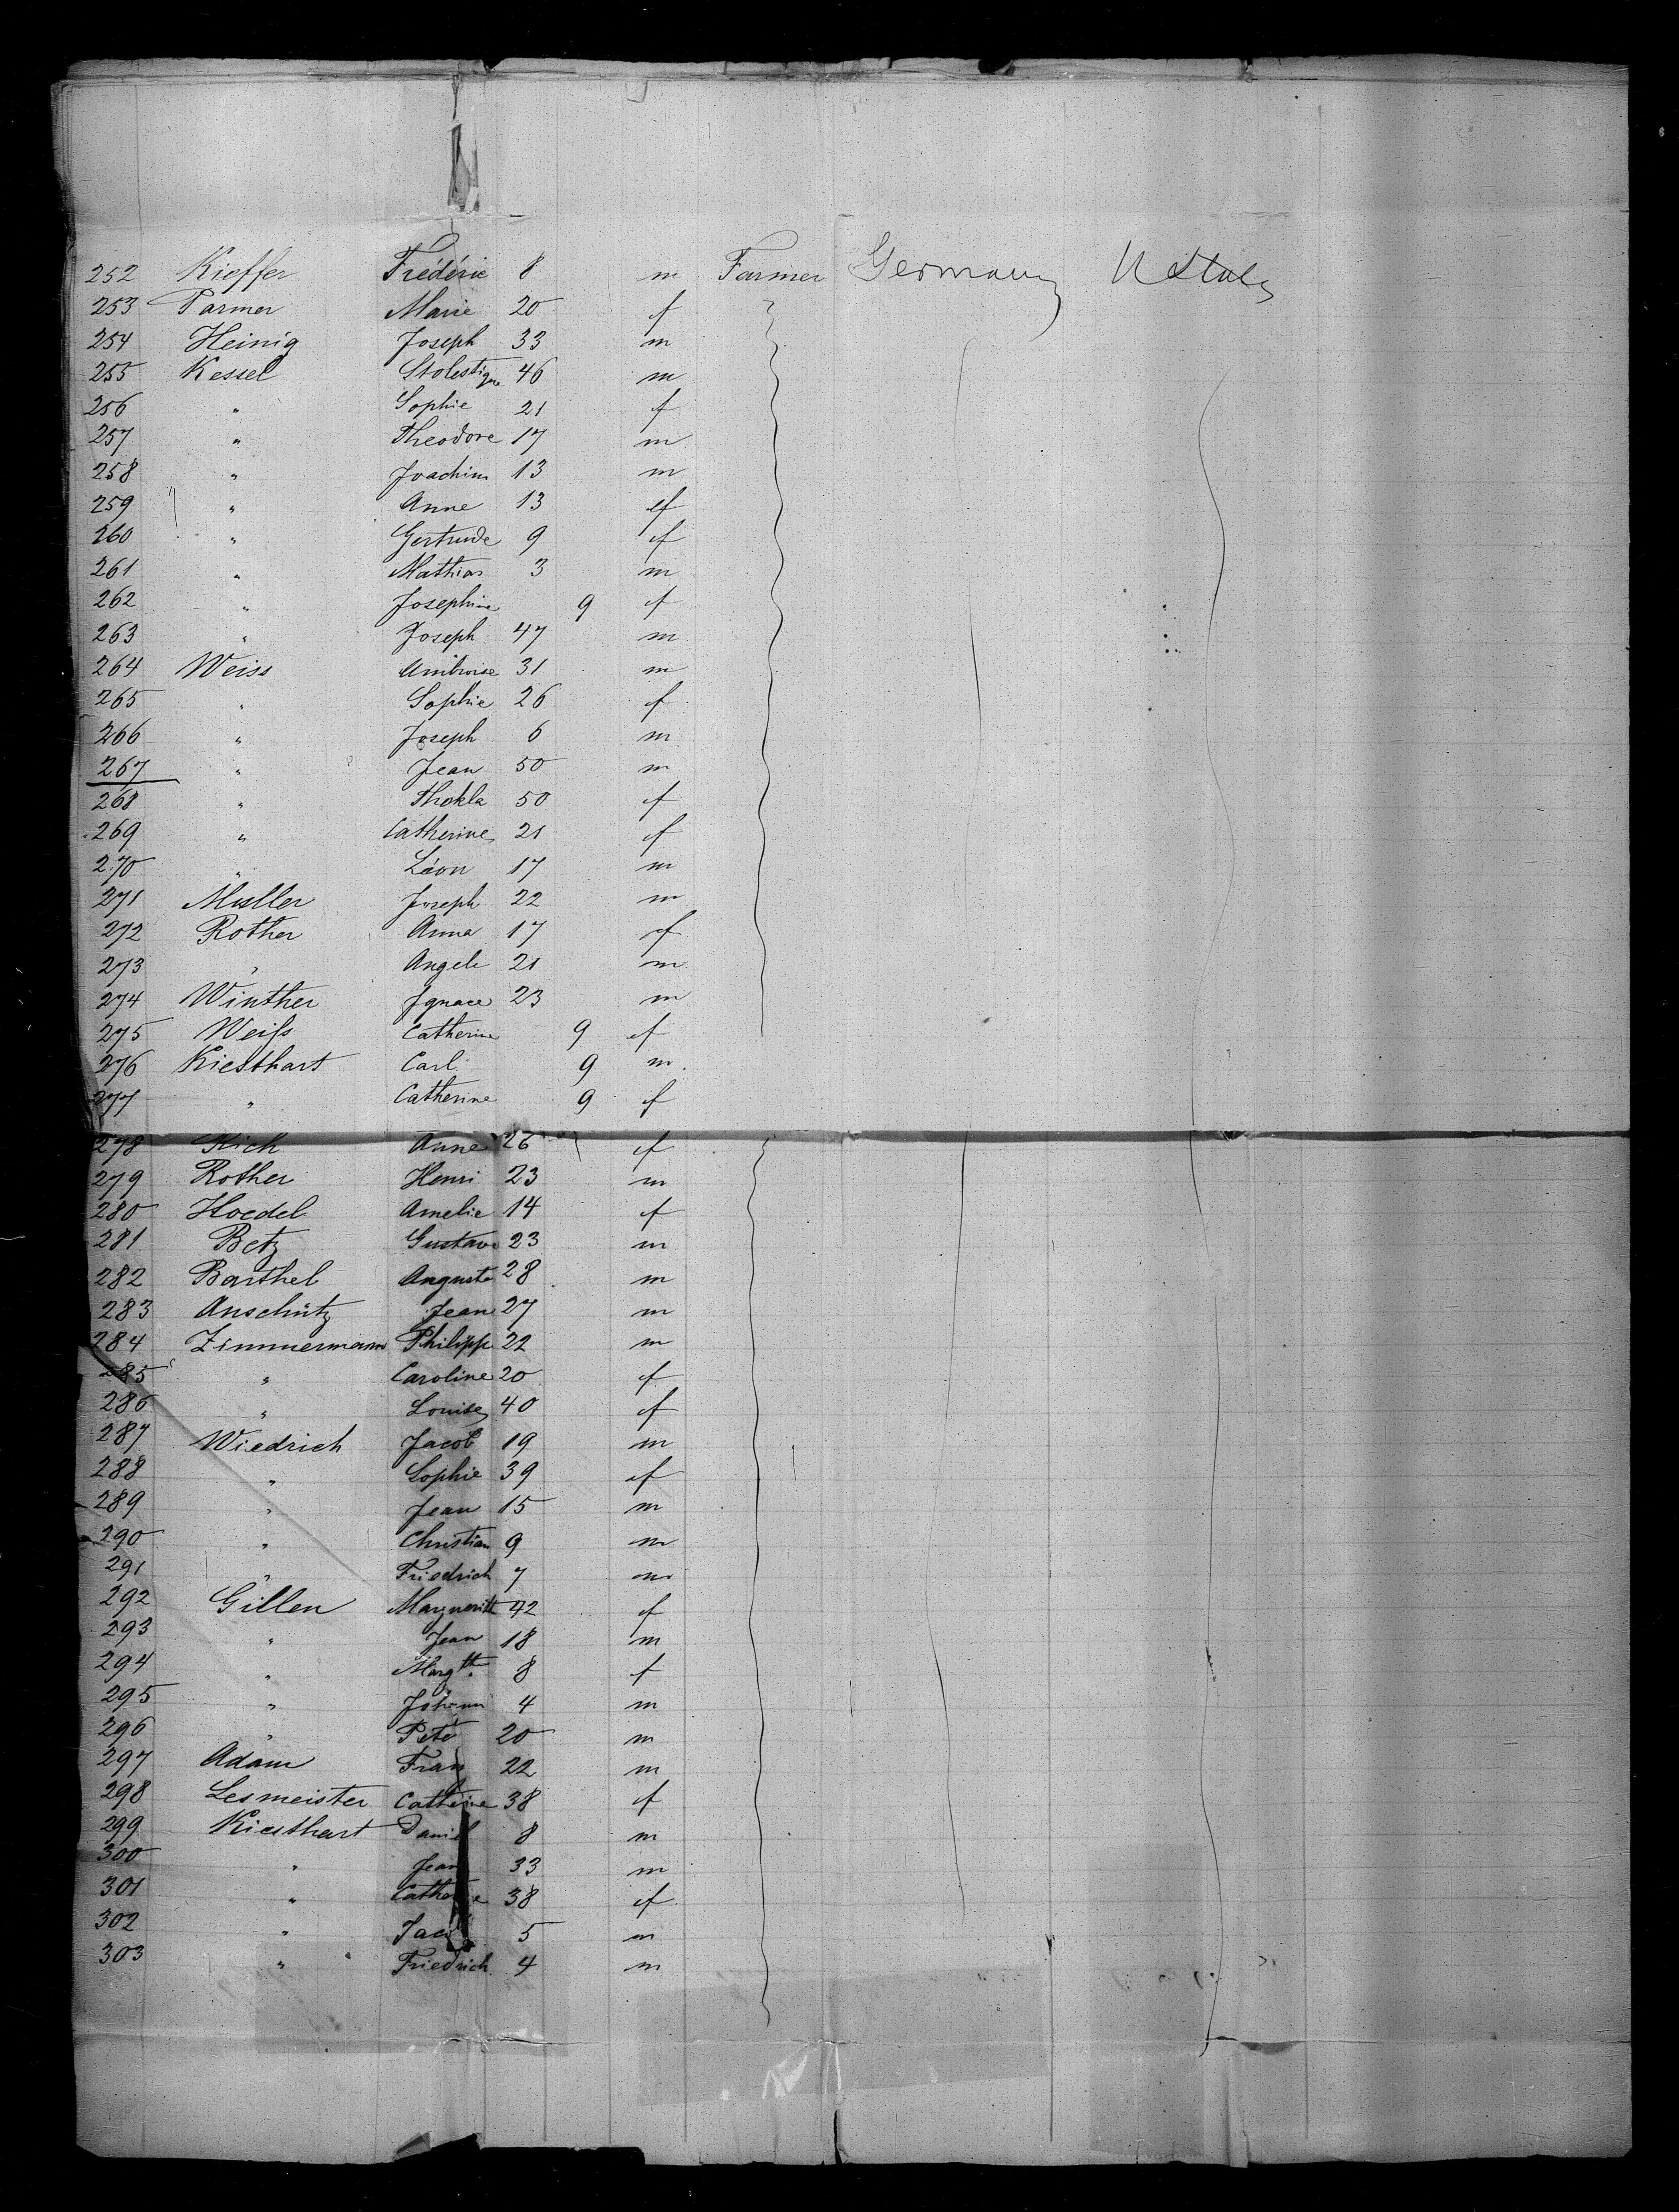 252 Kieffer Frédéric 8 m Farmer Germany U States
253 Parmer Marie 20 f
254 Heinig Joseph 33 m
255 Kessel 46 m
256 " Sophie 21 f
257 " Theodore 17 m
258 " Joachim 13 m
259 " Anne 13 f
260 " Gertrude 9 f
261 " Mathias 3 m
262 " Josephine 9 f
263 " Joseph 47 m
264 Weiss Ambroise 31 m
265 " Sophie 26 f
266 " Joseph 6 m
267 " Jean 50 m
268 " Thekla 50 f
269 " Catherine 21 f
270 " Léon 17 m
271 Muller Joseph 22 m
272 Rother Anna 17 f
273 " Angele 21 m
274 Winther Ignace 23 m
275 Weiss Catherine 9 f
276 Kiesthart Carl 9 m
277 " Catherine 9 f
278 Kich Anne 26 f
279 Rother Henri 23 m
280 Hoedel Amelie 14 f
281 Betz Gustave 23 m
282 Barthel Auguste 28 m
283 Anschütz Jean 27 m
284 Zimmermann Philipp 22 m
285 " Caroline 20 f
286 " Louise 40 f
287 Wiedrich Jacob 19 m
288 " Sophie 39 f
289 " Jean 15 m
290 " Christian 9 m
291 " Friedrich 7 m
292 Gillen Marguerite 42 f
293 " Jean 18 m
294 " Margth. 8 f
295 " Johann 4 m
296 " Peter 20 m
297 Adam Franz 22 m
298 Lesmeister Catherine 38 f
299 Kiesthart Daniel 8 m
300 " Jean 33 m
301 " Catherine 38 f
302 " Jacob 5 m
303 " Friedrich 4 m